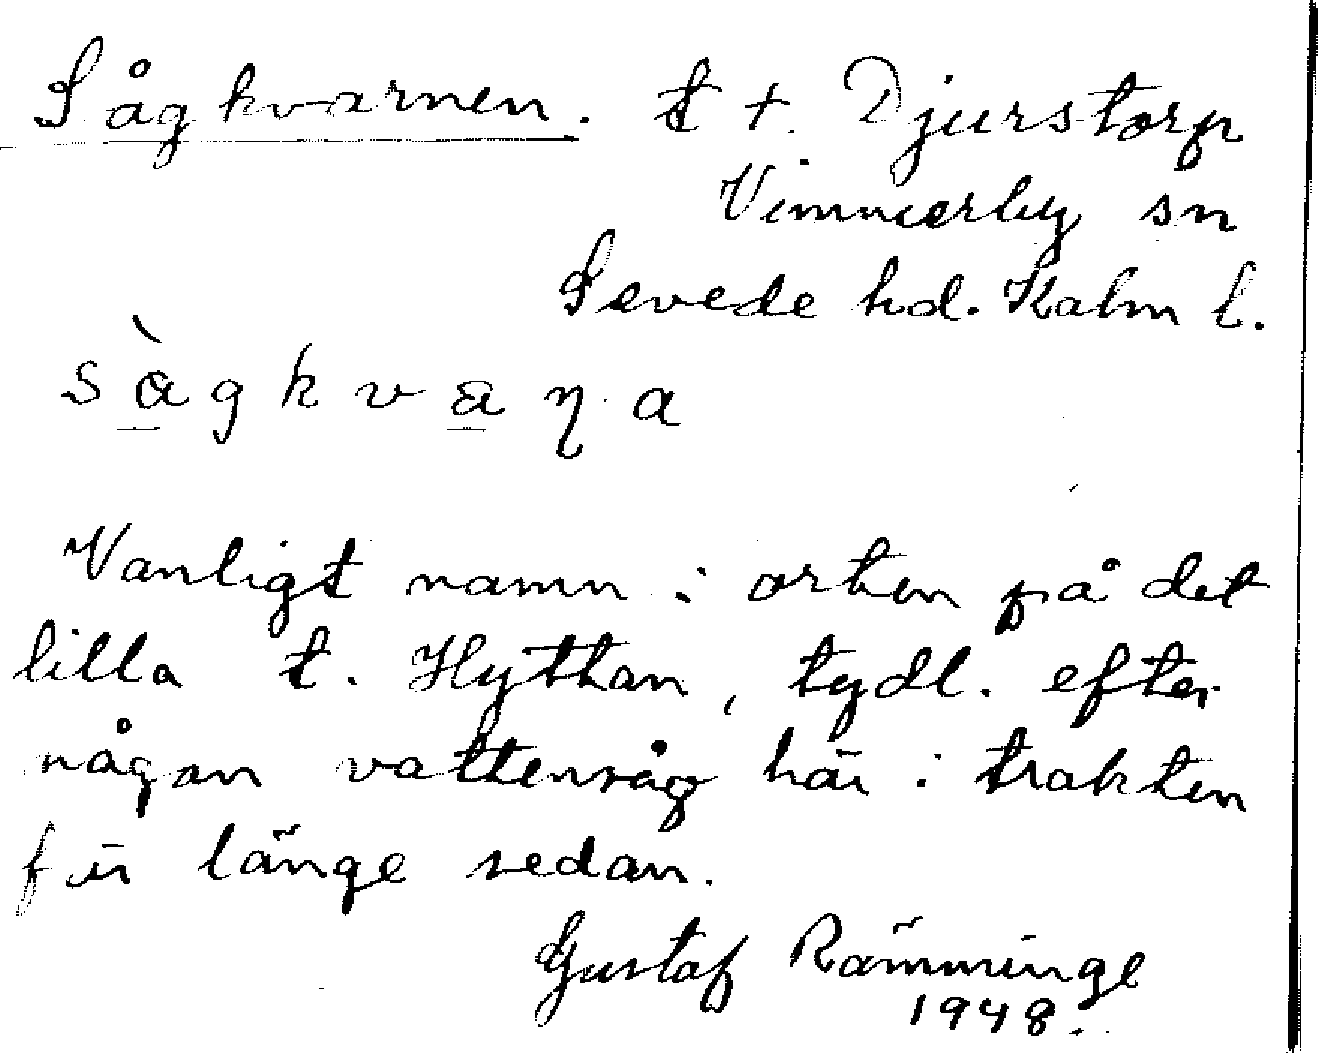 Sågkvarnen. t t. Djurstorp
Vimmerby sn
Sevede hd. Kalm l.
sågkvaṇa
Vanligt namn i orten på det
lilla t. Hyttan, tydl. efter
någon vattensåg här i trakten
för länge sedan.
Gustaf Rämminge
1948.